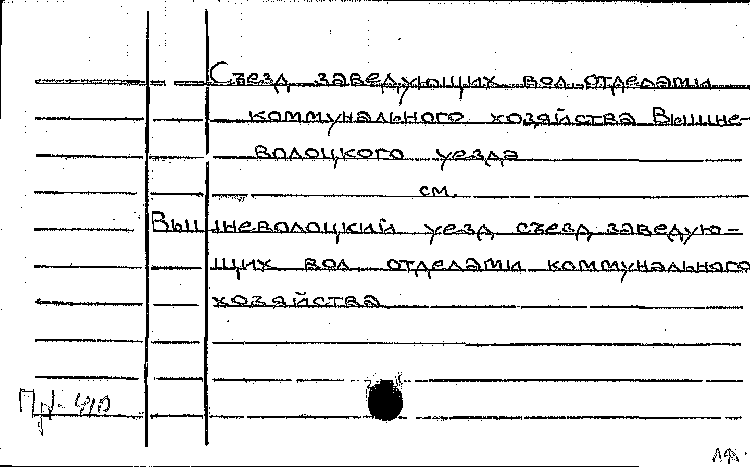 Съезд заведующих вол. отделами
коммунального хозяйства Вышне-
волоцкого уезда
см.
Вышневолоцкий уезд, съезд заведую-
щих вол. отделами коммунального
хозяйства